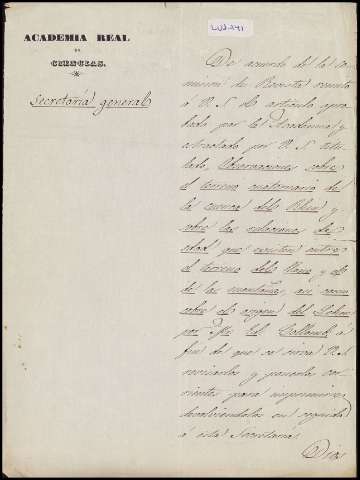 ACADEMIA REAL
DE
CIENCIAS.
Secretaría general
De acuerdo de la Co-
mision de Revista remito
á V. S. el artículo apro-
bado por la Academia y
estractado por V. S. titu-
lado, Observaciones sobre
el terreno cuaternario de
la cuenca del Rhin y
sobre las relaciones de
edad que existen entre
el terreno del llano y el
de las montañas, asi como
sobre el origen del Lehm
por Mr. Ed. Collomb, á
fin de que se sirva V. S.
revisarlo y ponerlo cor-
riente para imprimirse
devolviéndolo en seguida
á esta Secretaria
Dios